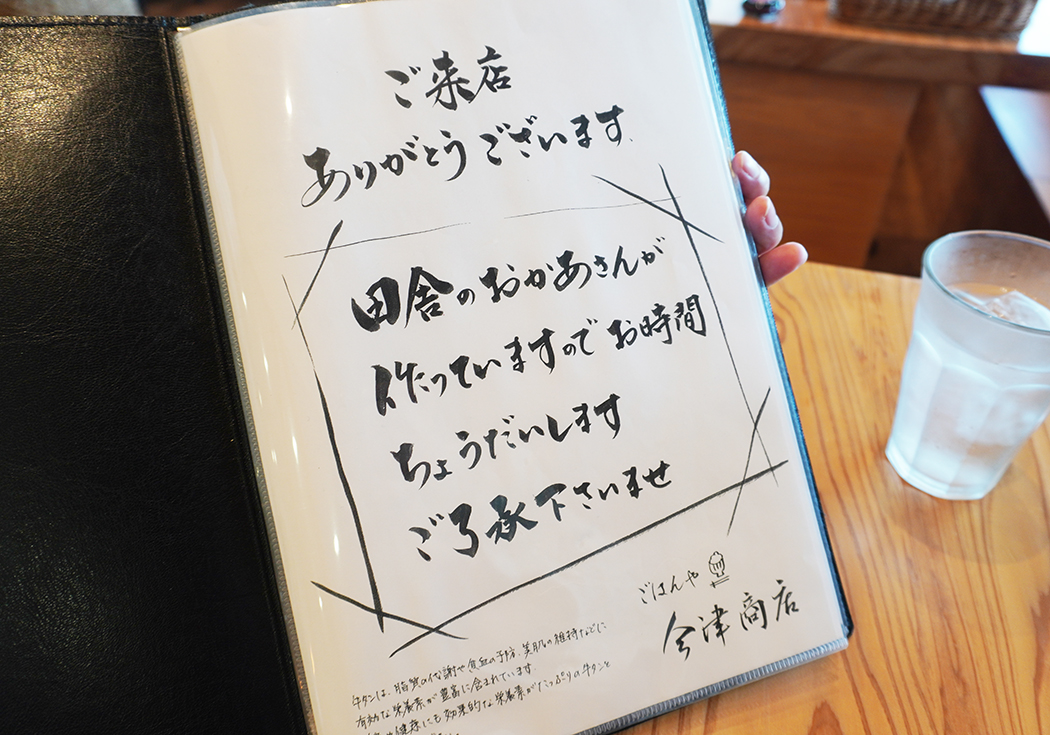 ご来店
ありがとうございます.
田舎のおかあさんが
作っていますのでお時間
ちょうだいします
ご了承下さいませ
ごはんや
今津商店
牛タンは、脂質の代謝や貧血の予防、美肌の維持などに
有効な栄養素が豊富に含まれています.
健康にも効果的な栄養素がたっぷりの牛タンと